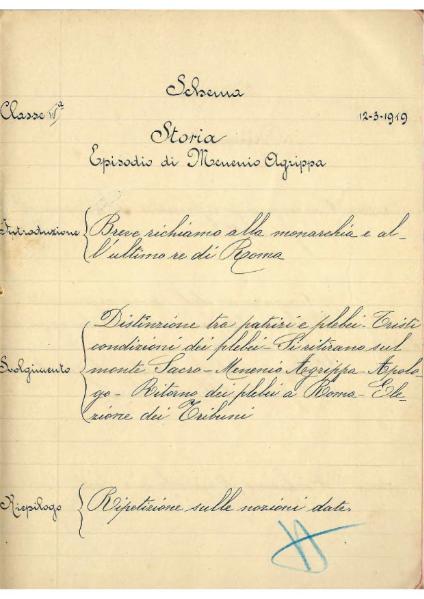 Schema
Classe 12-3-1919
Storia
Episodio di Menenio Agrippa
Introduzione
Breve richiamo alla monarchia e al-
l'ultimo re di Roma
Svolgimento
Distinzione tra patrizi e plebei - Tristi
condizioni dei plebei - Si ritirano sul
monte Sacro - Menenio Agrippa - Apolo-
go - Ritorno dei plebei a Roma - Ele-
zione dei Tribuni
Riepilogo
Ripetizione sulle nozioni date.